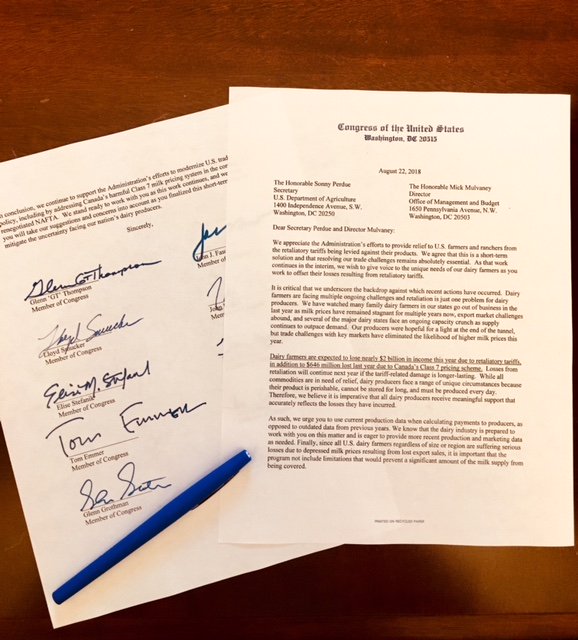 n conclusion, we continue to support the Administration's efforts to modernize U.S. trad
policy, including by addressing Canada's harmful Class 7 milk pricing system in the con
renegotiated NAFTA. We stand ready to work with you as this work continues, and we
you will take our suggestions and concerns into account as you finalized this short-term
mitigate the uncertainty facing our nation's dairy producers.
Sincerely,
Glenn GT Thompson
Glenn "GT" Thompson
Member of Congress
John J. Faso
Member of
Lloyd Smucker
Lloyd Smucker
Member of Congress
Elise M. Stefanik
Elise Stefanik
Member of Congress
Tom Emmer
Tom Emmer
Member of Congress
Glenn Grothman
Member of Congress
Congress of the United States
Washington, DC 20515
August 22, 2018
The Honorable Sonny Perdue
Secretary
U.S. Department of Agriculture
1400 Independence Avenue, S.W.
Washington, DC 20250
The Honorable Mick Mulvaney
Director
Office of Management and Budget
1650 Pennsylvania Avenue, N.W.
Washington, DC 20503
Dear Secretary Perdue and Director Mulvaney:
We appreciate the Administration's efforts to provide relief to U.S. farmers and ranchers from
the retaliatory tariffs being levied against their products. We agree that this is a short-term
solution and that resolving our trade challenges remains absolutely essential. As that work
continues in the interim, we wish to give voice to the unique needs of our dairy farmers as you
work to offset their losses resulting from retaliatory tariffs.
It is critical that we underscore the backdrop against which recent actions have occurred. Dairy
farmers are facing multiple ongoing challenges and retaliation is just one problem for dairy
producers. We have watched many family dairy farmers in our states go out of business in the
last year as milk prices have remained stagnant for multiple years now, export market challenges
abound, and several of the major dairy states face an ongoing capacity crunch as supply
continues to outpace demand. Our producers were hopeful for a light at the end of the tunnel,
but trade challenges with key markets have eliminated the likelihood of higher milk prices this
year.
Dairy farmers are expected to lose nearly $2 billion in income this year due to retaliatory tariffs,
in addition to $646 million lost last year due to Canada's Class 7 pricing scheme. Losses from
retaliation will continue next year if the tariff-related damage is longer-lasting. While all
commodities are in need of relief, dairy producers face a range of unique circumstances because
their product is perishable, cannot be stored for long, and must be produced every day.
Therefore, we believe it is imperative that all dairy producers receive meaningful support that
accurately reflects the losses they have incurred.
As such, we urge you to use current production data when calculating payments to producers, as
opposed to outdated data from previous years. We know that the dairy industry is prepared to
work with you on this matter and is eager to provide more recent production and marketing data
as needed. Finally, since all U.S. dairy farmers regardless of size or region are suffering serious
losses due to depressed milk prices resulting from lost export sales, it is important that the
program not include limitations that would prevent a significant amount of the milk supply from
being covered.
PRINTED ON RECYCLED PAPER